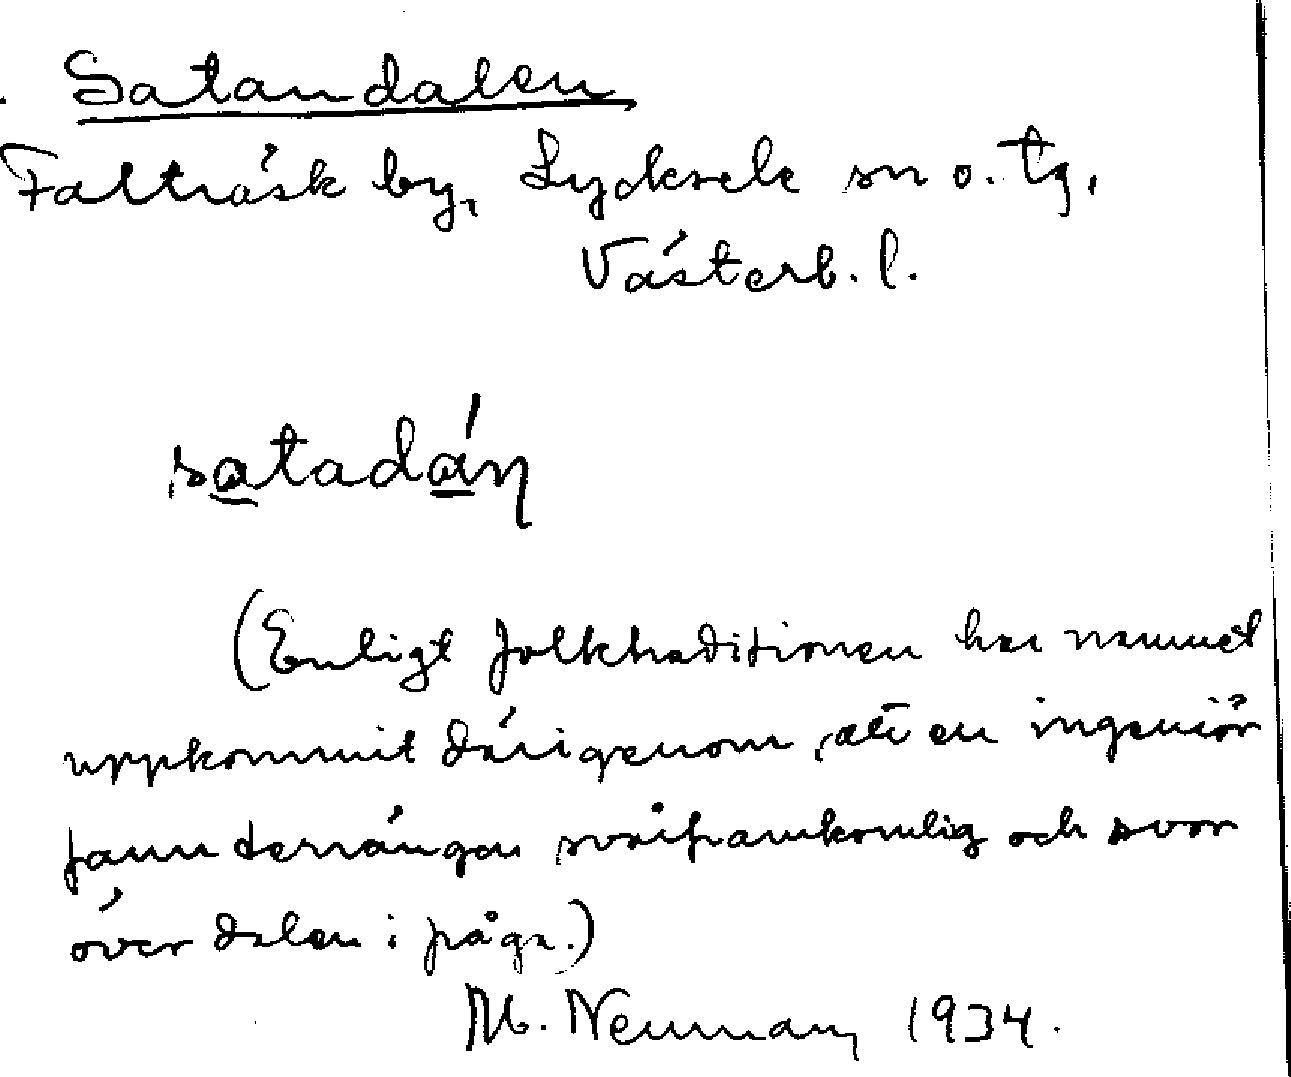 Satandalen
Falträsk by, Lycksele sn o. tg.
Västerb. l.
satadáŋ
(Enligt folktraditionen har namnet
uppkommit därigenom, att en ingeniör
fann terrängen svårframkomlig och svor
över dalen i fråga.)
M. Neuman, 1934.